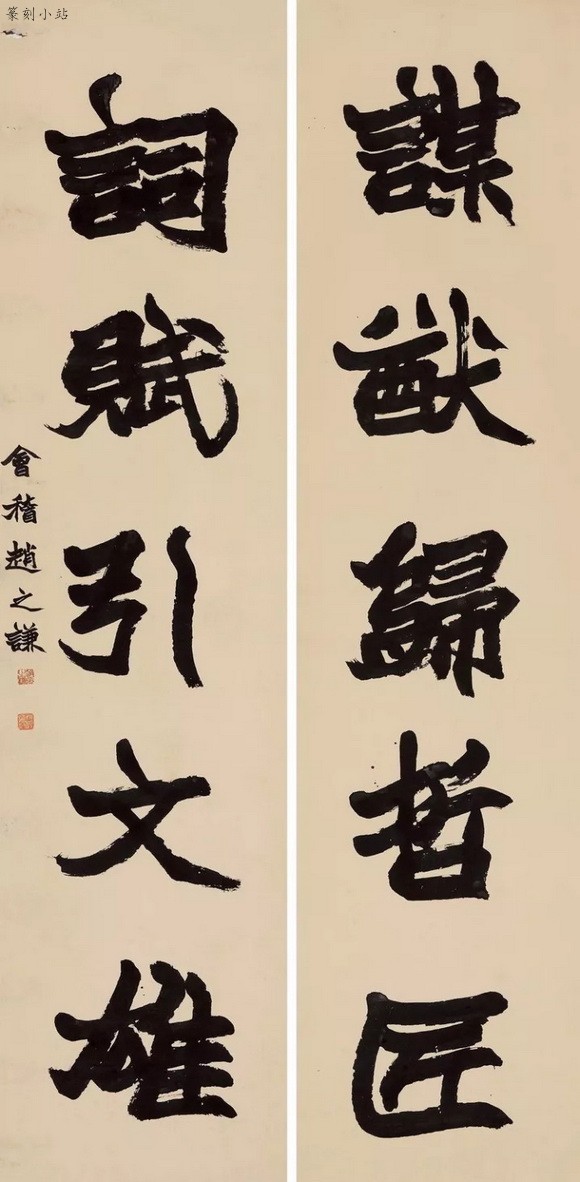 篆刻小站
謀猷歸哲匠
詞賦引文雄
會稽趙之謙